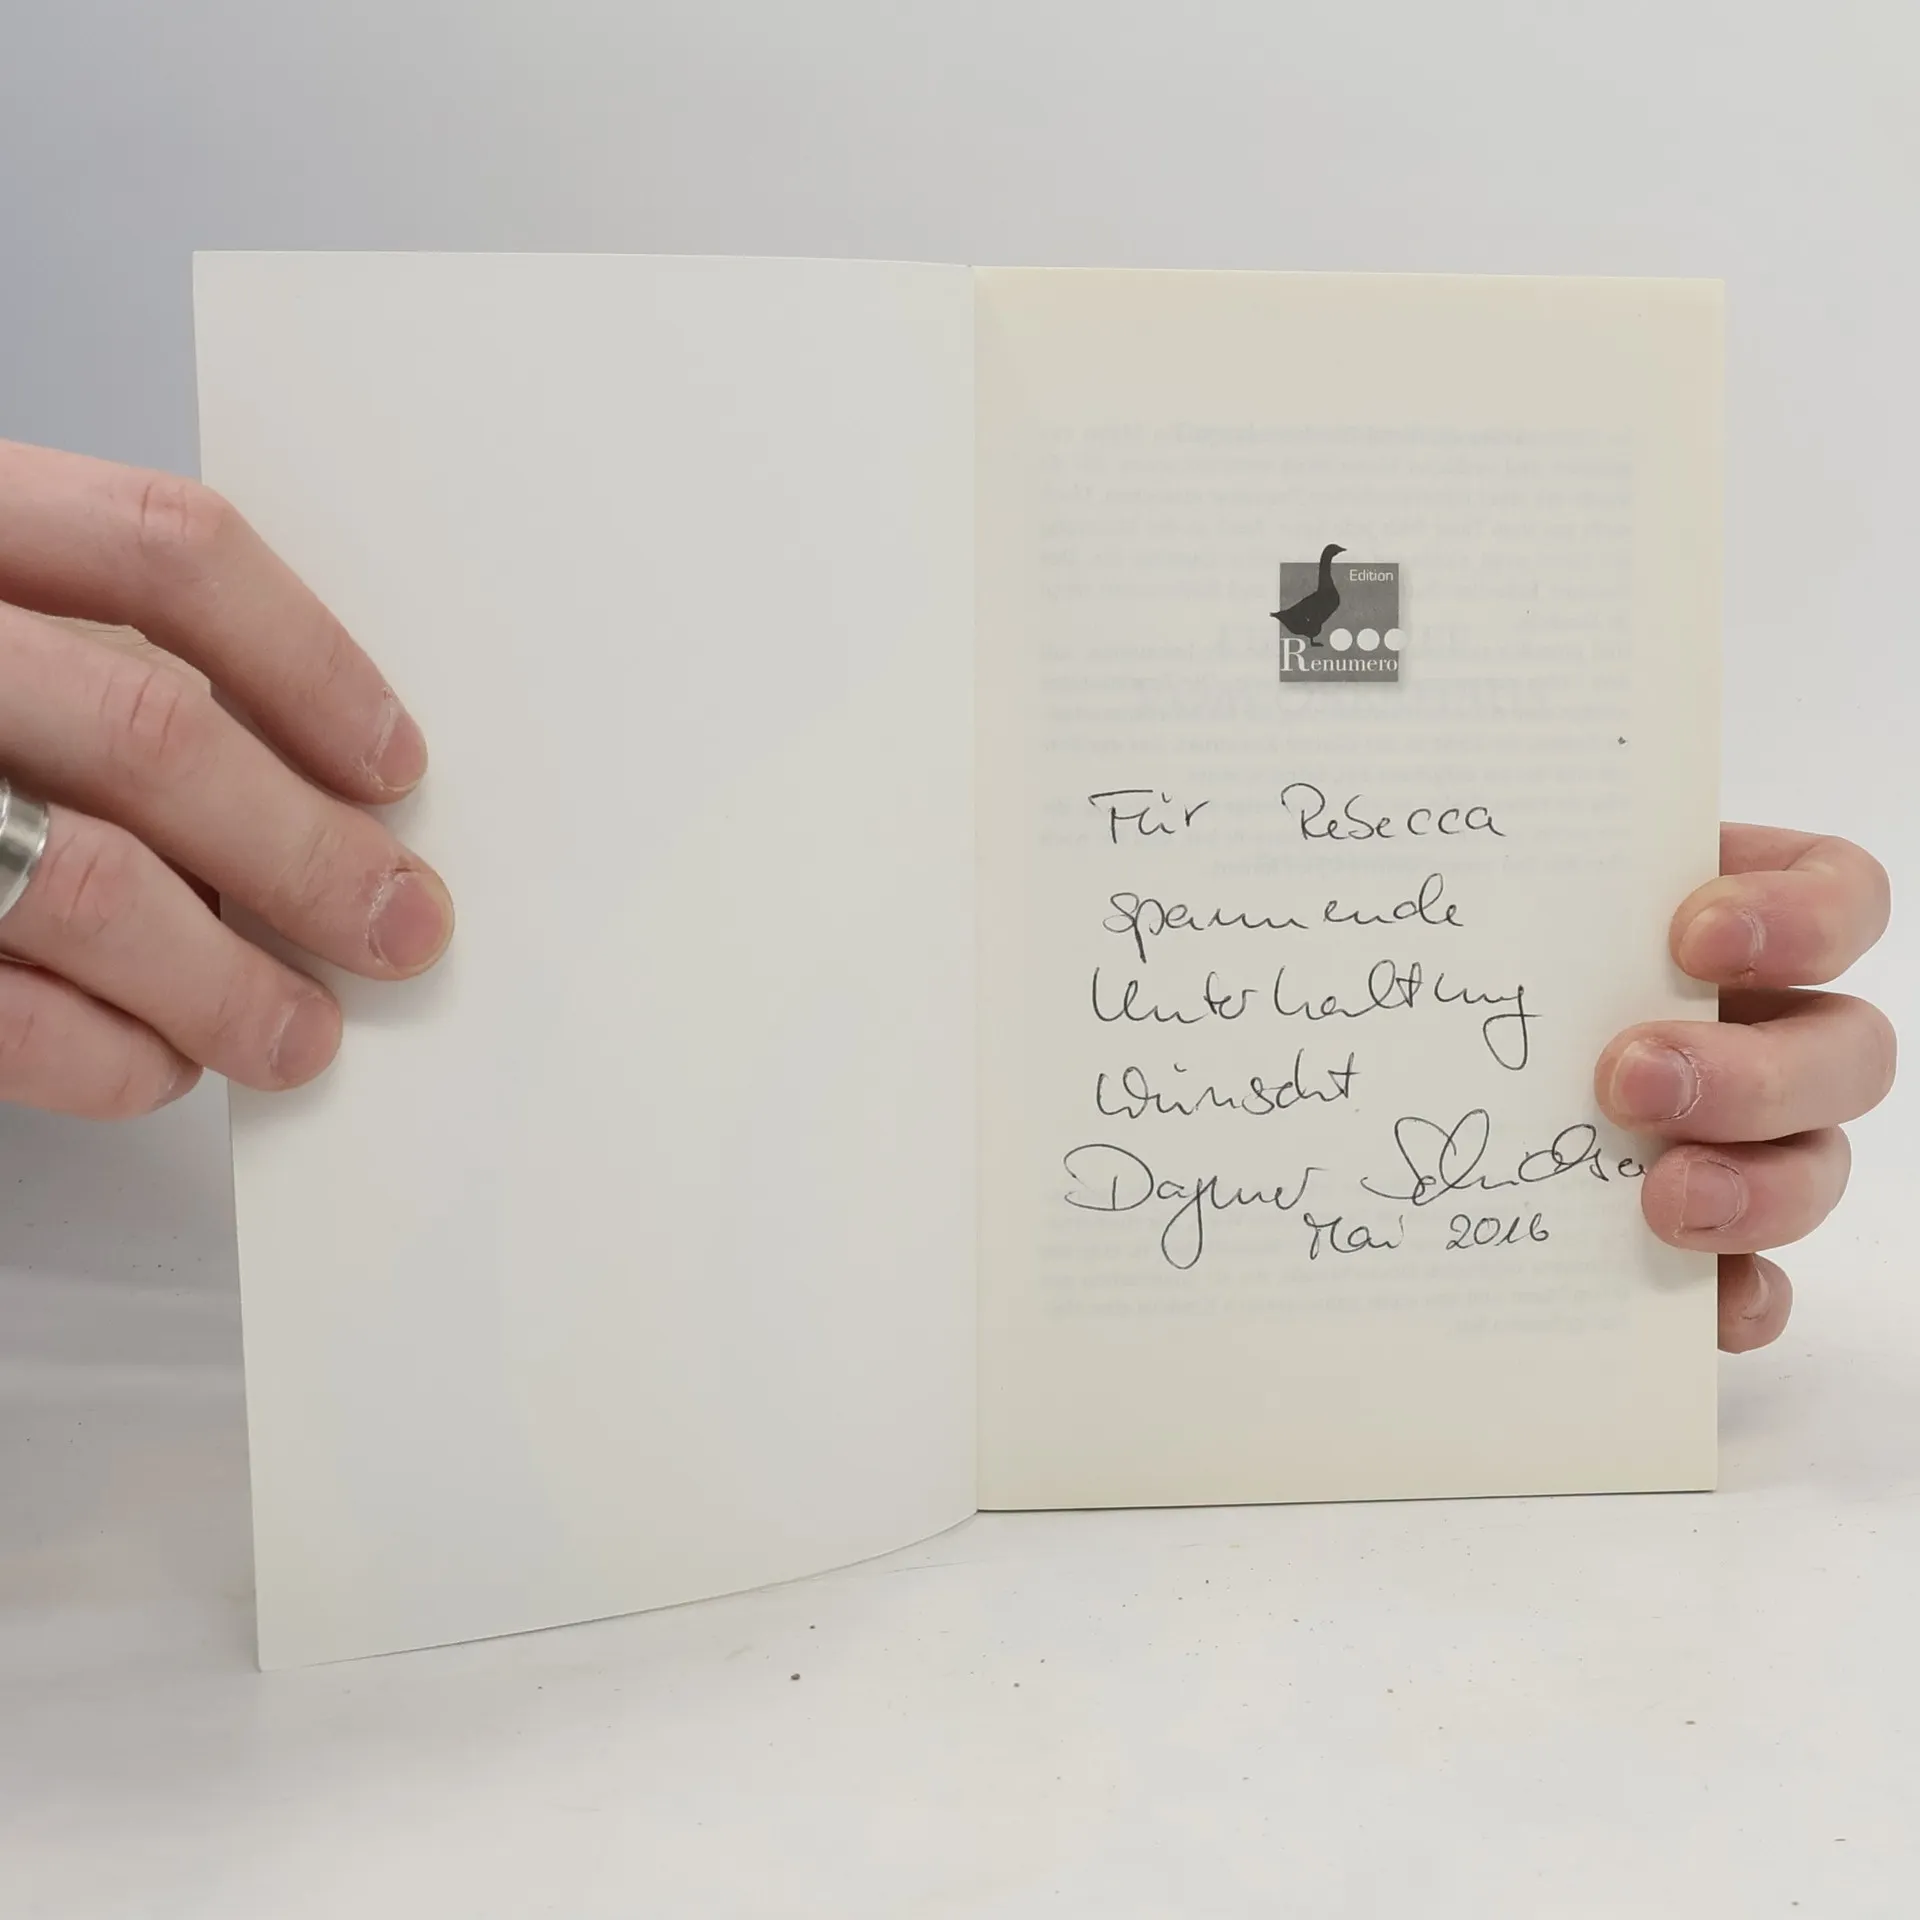 Edition
Renumero
Für Rebecca
spannende
Unterhaltung
Wünscht
Dagmar
Mai 2016